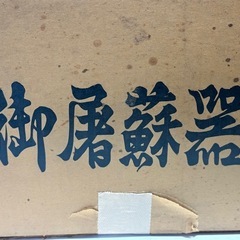 御屠蘇器